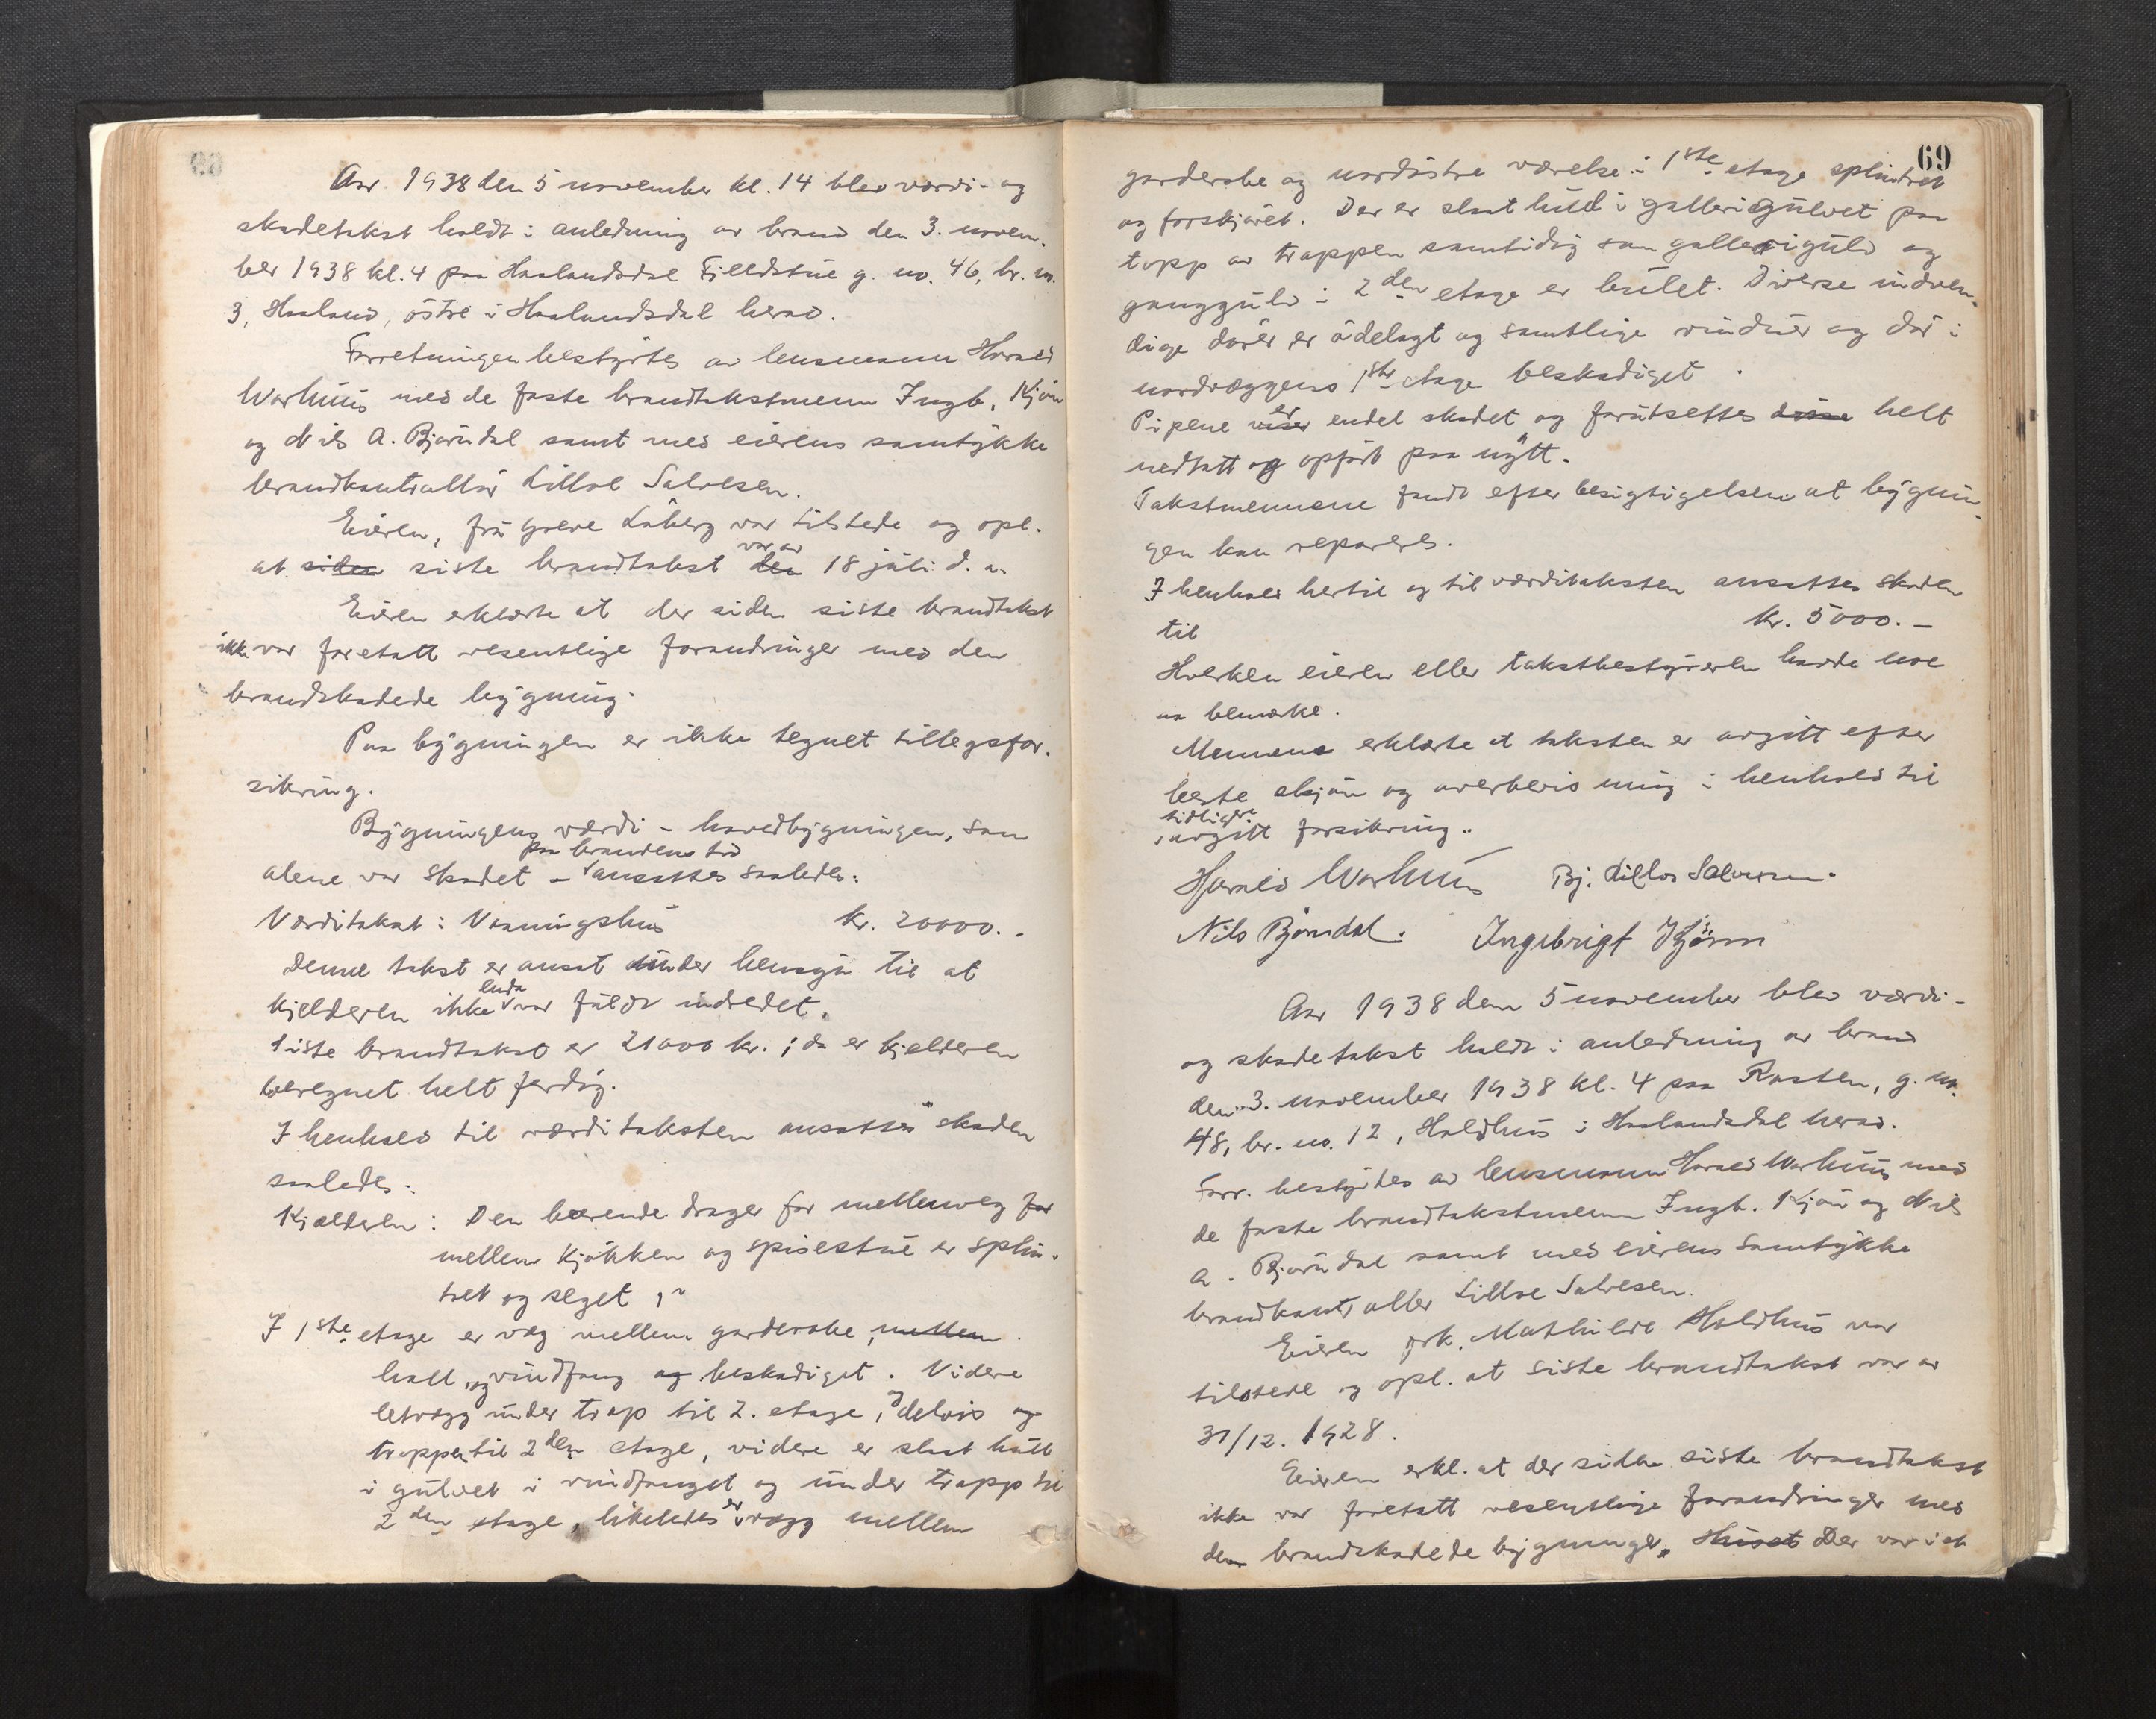 Aar 1938 den 5 november kl. 14 blev værdi- og
skadetakst holdt i anledning av brand den 3. novem-
ber 1938 kl. 4 paa Haalandsdal Fjelldstue g. no. 46, br. no.
3, Haaland, östre i Haalandsdal herad.
Forretningen bestyrtes av lensmann Harald
Warhuus med de faste brandtakstmenn Ingb. Kjön
og Nils A. Bjørndal samt med eierens samtykke
brandkontrollör Lilloe Salvesen.
Eieren, fru Greve Låberg var tilstede og opl.
at siden siste brandtakst var av den 18 juli d. a.
Eieren erklærte at der siden siste brandtakst
ikke var foretatt vesentlige forandringer med den
brandskadede bygning.
Paa bygningen er ikke tegnet tillegsfor-
sikring.
Bygningens værdi - hovedbygningen, som
alene var skadet - paa brandens tid ansattes saaledes:
Værditakst: Vaaningshus kr. 20000.-
Denne takst er ansat under hensyn til at
kjelderen ikke enda var fuldt indredet.
Siste brandtakst er 21000 kr.; da er kjelderen
beregnet helt ferdig.
I henhold til værditaksten ansattes skaden
saaledes:
Kjælderen: Den bærende drager for mellemveg for
mellem kjökken og spisestue er splin-
tret og seget,
I 1ste etage er væg mellem garderobe, mellem
hall, og vindfang og beskadiget. Videre
letvægg under trap til 2. etage, og delvis og
trappen til 2den etage, videre er slaat hull
i gulvet i vindfanget og under trapp til
2den etage, likeledes er vægg mellem
69
garderobe og nordöstre værelse i 1ste etage splintret
og forskjövet. Der er slaat hull i gallerigulvet paa
topp av trappen samtidig som gallerigulv og
ganggulv i 2den etage er bulet. Diverse indven-
dige dörer er ödelagt og samtlige vinduer og dör i
nordvæggens 1ste etage beskadiget.
Pipene viser er endel skadet og forutsettes disse helt
nedtatt og opfört paa nytt.
Takstmennene fandt efter besigtigelsen at bygnin-
gen kan repareres.
I henhold hertil og til værditaksten ansattes skaden
til kr. 5000.-
Hverken eieren eller takstbestyreren hadde noe
aa bemerke.
Mennene erklærte at taksten er avgitt efter
beste skjön og overbevisning i henhold til
tidligere avgitt forsikring.
Harald Warhuus Bj. Lilloe Salvesen.
Nils Bjørndal. Ingebrigt Kjönn
Aar 1938 den 5 november blev værdi-
og skadetakst holdt i anledning av brand
den 3. november 1938 kl. 4 paa Rasten, g. no.
48, br. no. 12, Holdhus i Haalandsdal herad.
Forr. bestyrtes av lensmann Harald Warhuus med
de faste brandtakstmenn Ingb. Kjön og Nils
A. Bjørndal samt med eierens samtykke
brandkontroller Lilloe Salvesen.
Eieren frk. Mathilde Holdhus var
tilstede og opl. at siste brandtakst var av
31/12. 1928.
Eieren erkl. at der siden siste brandtakst
ikke var foretatt vesentlige forandringer med
den brandskadede bygninge. Huset Der var i et